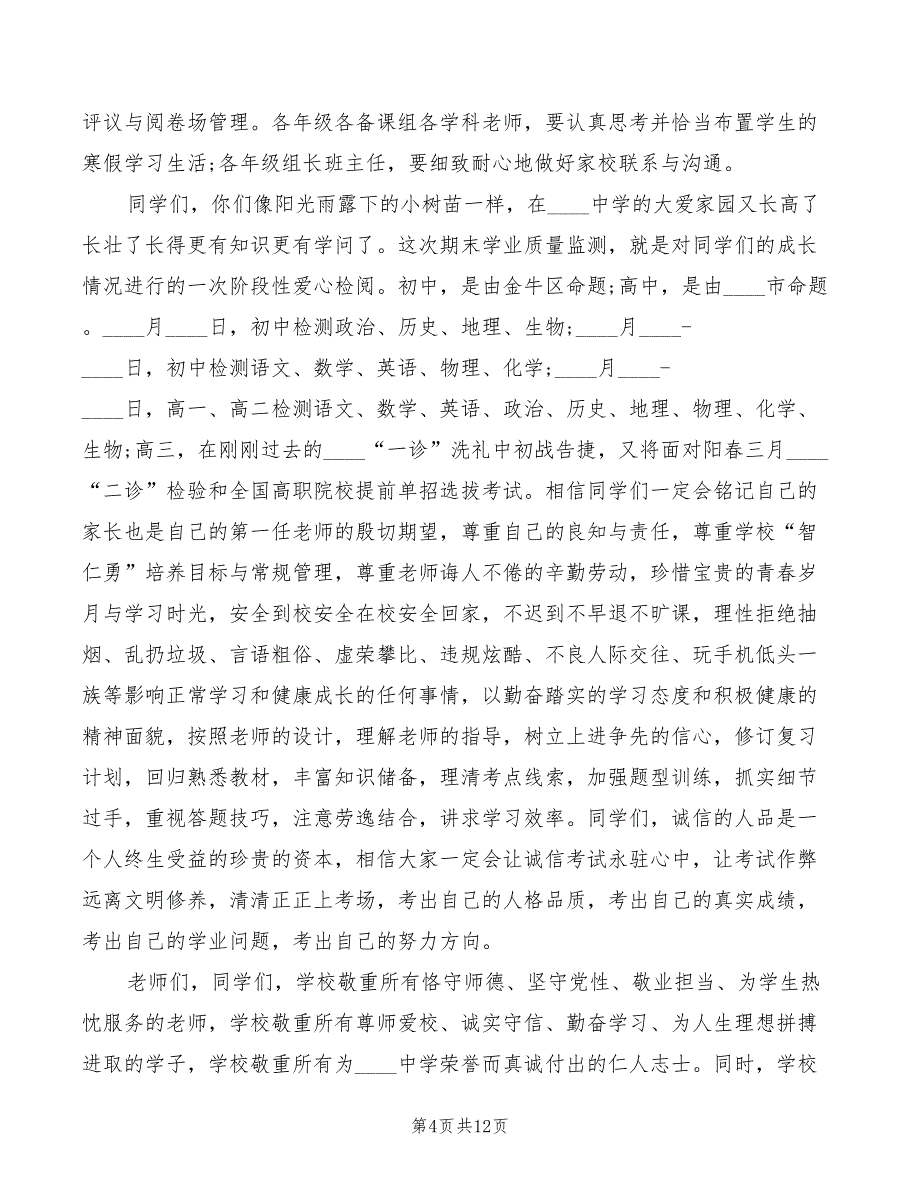 评议与阅卷场管理。各年级各备课组各学科老师，要认真思考并恰当布置学生的
寒假学习生活;各年级组长班主任，要细致耐心地做好家校联系与沟通。
同学们，你们像阳光雨露下的小树苗一样，在____中学的大爱家园又长高了
长壮了长得更有知识更有学问了。这次期末学业质量监测，就是对同学们的成长
情况进行的一次阶段性爱心检阅。初中，是由金牛区命题;高中，是由____市命题
。____月____日，初中检测政治、历史、地理、生物;____月____-
____日，初中检测语文、数学、英语、物理、化学;____月____-
____日，高一、高二检测语文、数学、英语、政治、历史、地理、物理、化学、
生物;高三，在刚刚过去的____“一诊”洗礼中初战告捷，又将面对阳春三月____
“二诊”检验和全国高职院校提前单招选拔考试。相信同学们一定会铭记自己的
家长也是自己的第一任老师的殷切期望，尊重自己的良知与责任，尊重学校“智
仁勇”培养目标与常规管理，尊重老师诲人不倦的辛勤劳动，珍惜宝贵的青春岁
月与学习时光，安全到校安全在校安全回家，不迟到不早退不旷课，理性拒绝抽
烟、乱扔垃圾、言语粗俗、虚荣攀比、违规炫酷、不良人际交往、玩手机低头一
族等影响正常学习和健康成长的任何事情，以勤奋踏实的学习态度和积极健康的
精神面貌，按照老师的设计，理解老师的指导，树立上进争先的信心，修订复习
计划，回归熟悉教材，丰富知识储备，理清考点线索，加强题型训练，抓实细节
过手，重视答题技巧，注意劳逸结合，讲求学习效率。同学们，诚信的人品是一
个人终生受益的珍贵的资本，相信大家一定会让诚信考试永驻心中，让考试作弊
远离文明修养，清清正正上考场，考出自己的人格品质，考出自己的真实成绩，
考出自己的学业问题，考出自己的努力方向。
老师们，同学们，学校敬重所有恪守师德、坚守党性、敬业担当、为学生热
忱服务的老师，学校敬重所有尊师爱校、诚实守信、勤奋学习、为人生理想拼搏
进取的学子，学校敬重所有为____中学荣誉而真诚付出的仁人志士。同时，学校
第4页共12页